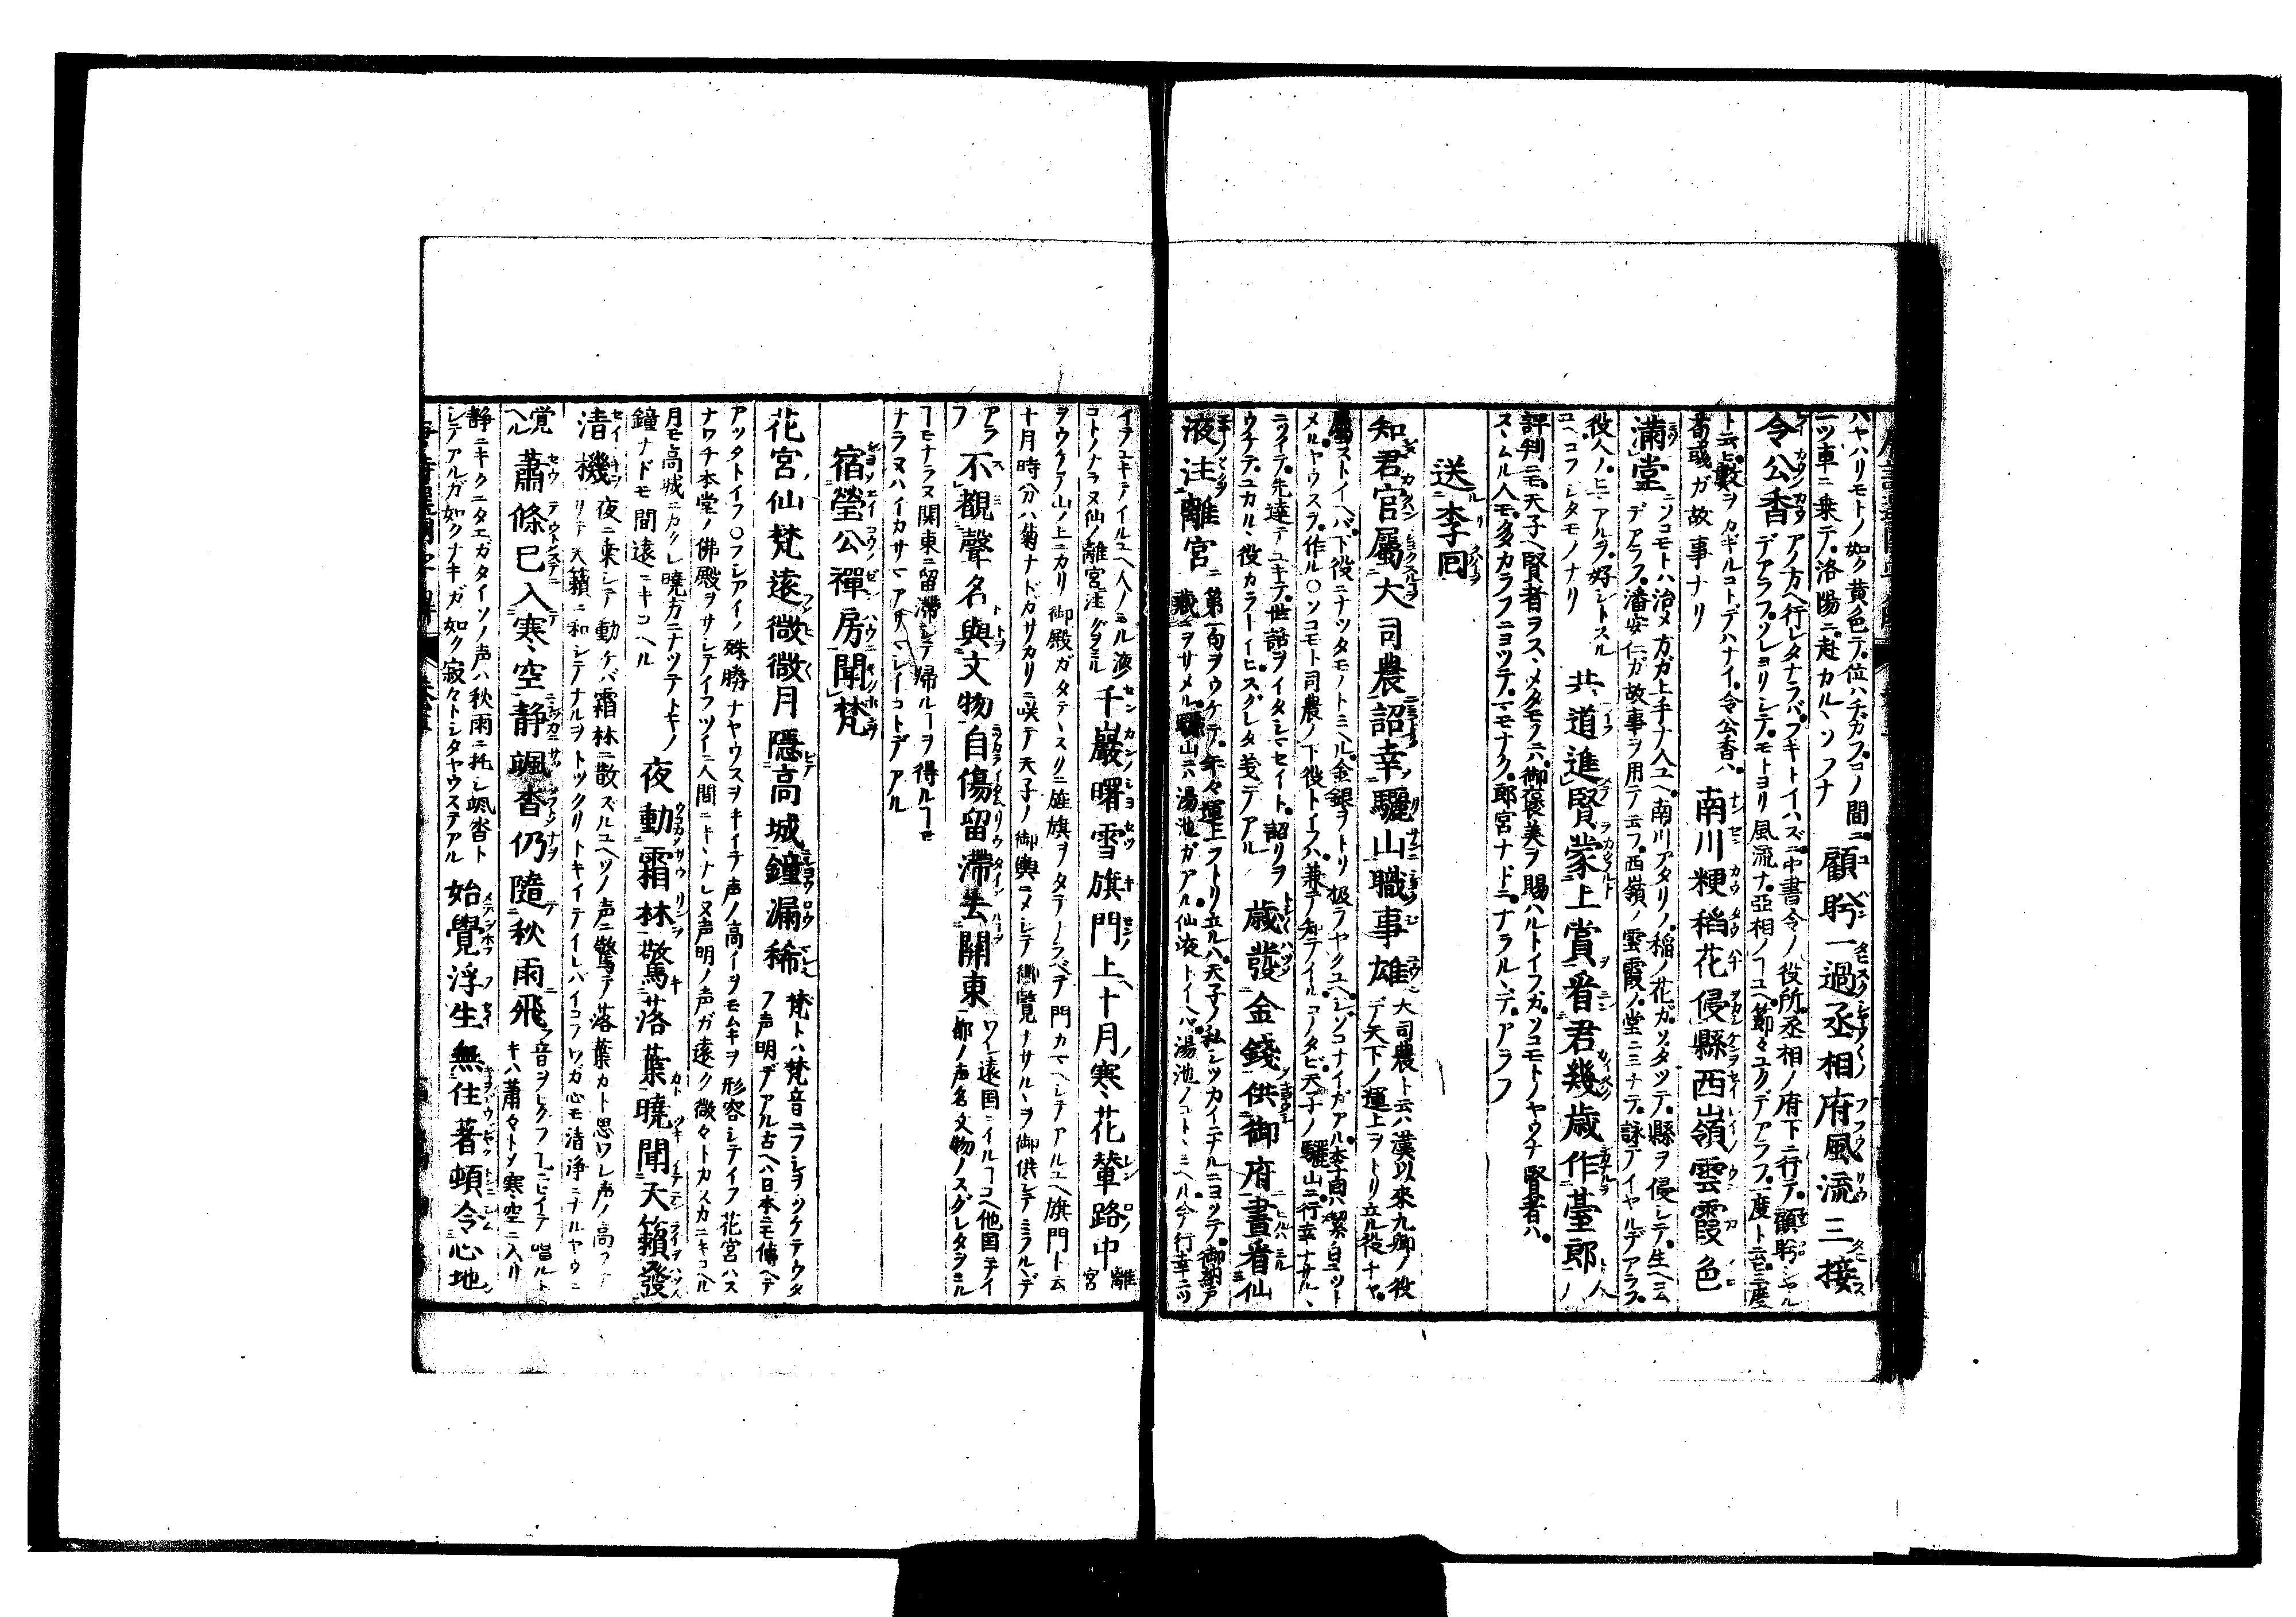 ハヤハリモトノ如ク黄色デ位ハチガフコノ間ニ
二ツ車ニ乗テ洛陽ニ赴カルヽソフナ
顧眄一過丞相府風流三接
令公香
アノ方ヘ行レタナラバフキトイハズニ中書令ノ役所丞相ノ府下ニ行テ顧眄シヤル
デアラフソレヨリシテモトヨリ風流ナ亞相ノヿユヘ節々ユクデアラフ一度ト云ヒ三度
ト云ヒ數ヲカギルコトデハナイ令公香ハ
荀彧ガ故事ナリ
南川粳稻花侵縣西嶺雲霞色
滿堂
ソコモトハ治メ方ガ上手ナ人ユヘ南川アタリノ稲ノ花ガソタツテ縣ヲ侵シテ生ヘコム
デアラフ潘安仁ガ故事ヲ用テ云フ西嶺ノ雲霞ノ堂ニミナテ詠テイヤルデアラフ
役人ノ上ニアルヲ好ントスル
ユヘコフシタモノナリ
共道進賢蒙上賞看君幾歲作臺郎
評判ニモ天子ヘ賢者ヲスヽメタモノニハ御褒美ヲ賜ハルトイフガソコモトノヤウナ賢者ハ
スヽムル人モ多カラフニヨツテマモナク郎官ナドニナラルヽデアラフ
送李回
知君官屬大司農詔幸驪山職事雄
大司農ト云ハ漢以來九卿ノ役
デ天下ノ運上ヲトリ立ル役ナヤ
屬ストイヘバ下役ニナツタモノトミヘル金銀ヲトリ扱ラヤクユヘ
メルヤウスヲ作ル○ソコモト司農ノ下役トイフハ兼テ知テイルコノタビ天子ノ驪山ニ行幸ナサルヽ
ニツイテ先達テユキテ世話ヲイタシマセイト詔リヲ
ウケテユカルヽ役カラトイヒスグレタ義デアル
歲發金錢供御府晝看仙
液注離宮
第一句ヲウケテ年々運上ヲトリ立ルハ天子ノ私シツカイニナルニヨツテ御納戸
藏ヲサメル驪山ニハ湯池ガアル仙液トイヘバ湯池ノコトヽミヘル今行幸ニツ
イテユキテイルユヘ人ノミル液
コトノナラヌ仙ノ離宮注グヲミル
千巖曙雪旗門上十月寒花輦路中
離
宮
ヲウケテ山ノ上ニカリ御殿ガタテヽスリニ旌旗ヲタテナラベテ門カマヘシテアルユヘ旗門ト云
十月時分ハ菊ナドガサカリニ咲テ天子ノ御輿ニメシテ御覽ナサルヽヲ御供シテミラルヽデ
アラ
フ
不覩聲名與文物自傷留滯去關東
ワシハ遠国ニイルヿユヘ他国ニテイ
都ノ声名文物ノスグレタヲミル
ヿモナラヌ関東ニ留滯シテ帰ルヿヲ得ルヿモ
ナラヌハイカサマアサマシイコトデアル
宿瑩公禪房聞梵
花宮仙梵遠微微月隱高城鐘漏稀
梵トハ梵音ニフシヲツケテウタ
フ声明デアル古ヘハ日本ニモ傳ヘテ
アツタトイフ○フシアイノ殊勝ナヤウスヲキイテ声ノ高イヲモムキヲ形容シテイフ花宮ハス
ナワチ本堂ノ佛殿ヲサシテイフツイニ人間ニキヽナレヌ声明ノ声ガ遠ク微々トカスカニキコヘル
月モ高城ニカクレ曉方ニナツテトキノ
鐘ナドモ間遠ニキコヘル
夜動霜林驚落葉曉聞天籟發
清機
夜ニ乗シテ動ケバ霜林ニ散ズルユヘソノ声ニ驚テ落葉カト思ワレ声ノ高フナ
リテ天籟ニ和シテナルヲトツクリトキイテイレバイコフワガ心モ清浄ニナルヤウニ
覚
ヘル
蕭條已入寒空靜颯沓仍隨秋雨飛
音ヲレクフヿニヒイテ唱ルト
キハ蕭々トソ寒空ニ入リ
静ニキクニタエガタイソノ声ハ秋雨ニ托シ颯沓ト
シテアルガ如クナキガ如ク寂々トシタヤウスデアル
始覺浮生無住著頓令心地